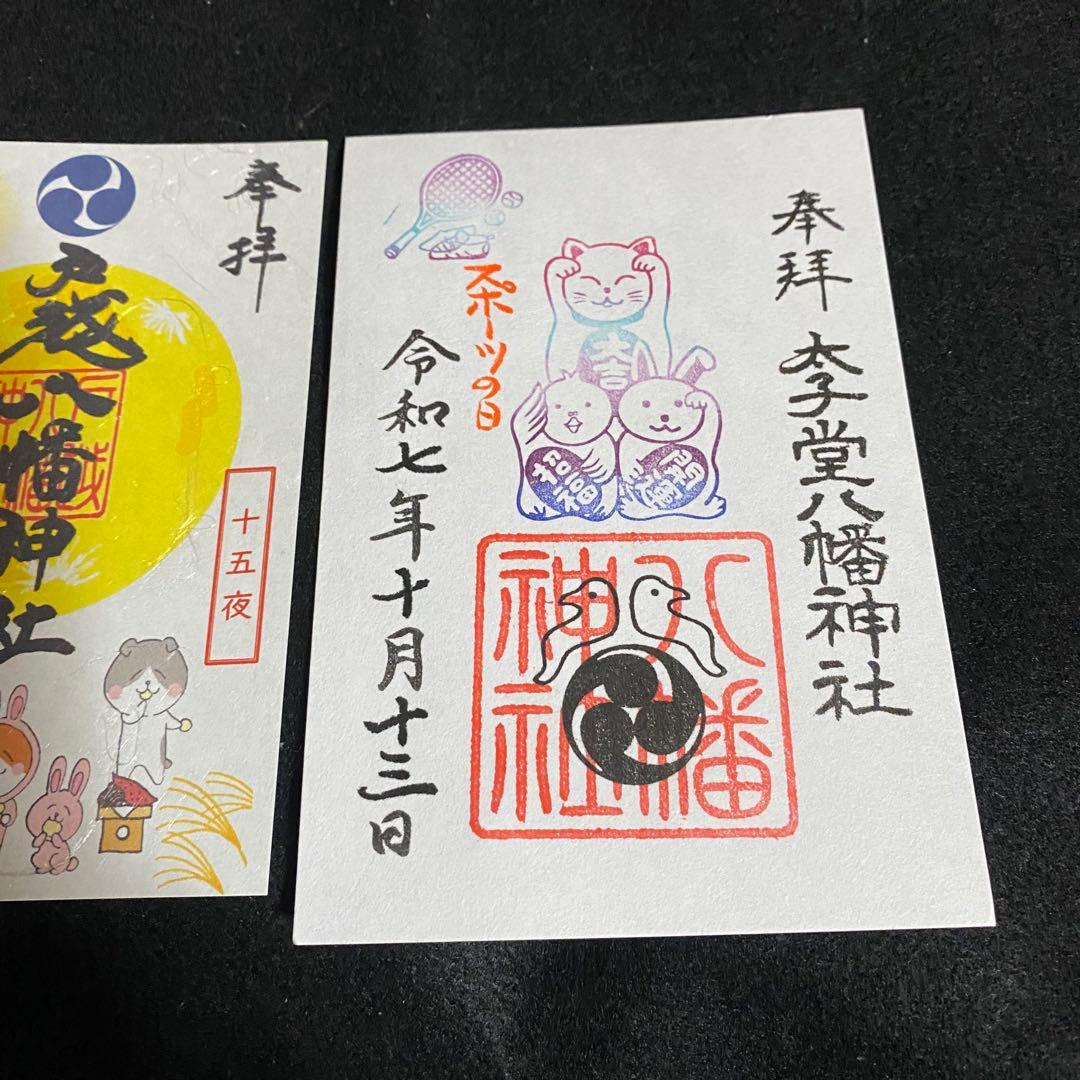 奉拝
太子堂八幡神社
スポーツの日
令和七年十月十三日
大吉
招福
八幡
神社
奉拝
戸越八幡神社
十五夜